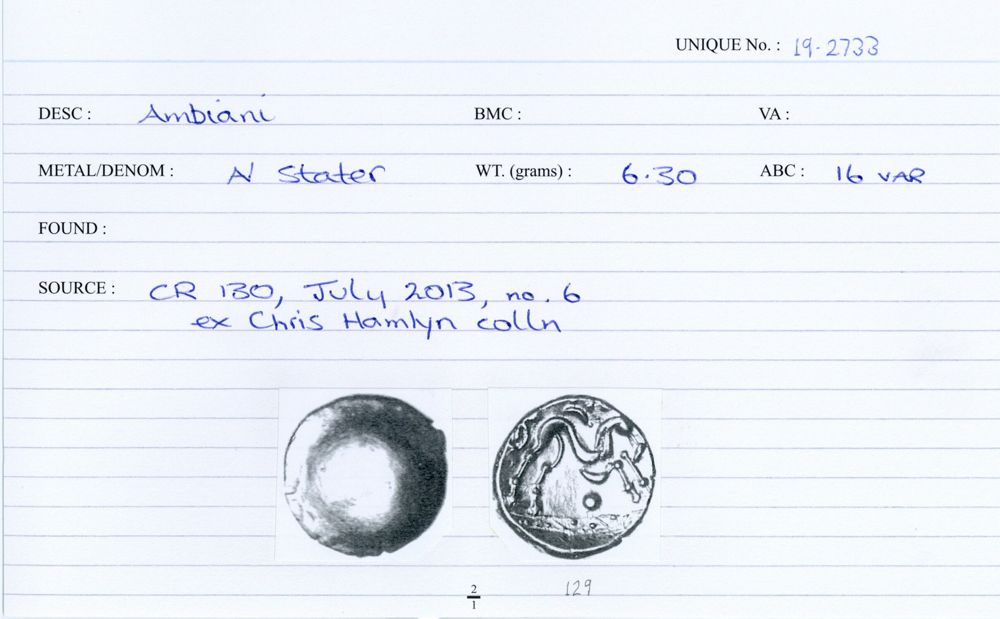 UNIQUE No. : 19-2733
DESC : Ambiani BMC : VA :
METAL/DENOM : N Stater WT. (grams) : 6.30 ABC : 16 VAR
FOUND :
SOURCE : CR 130, July 2013, no. 6
ex Chris Hamlyn colln
2/1 129